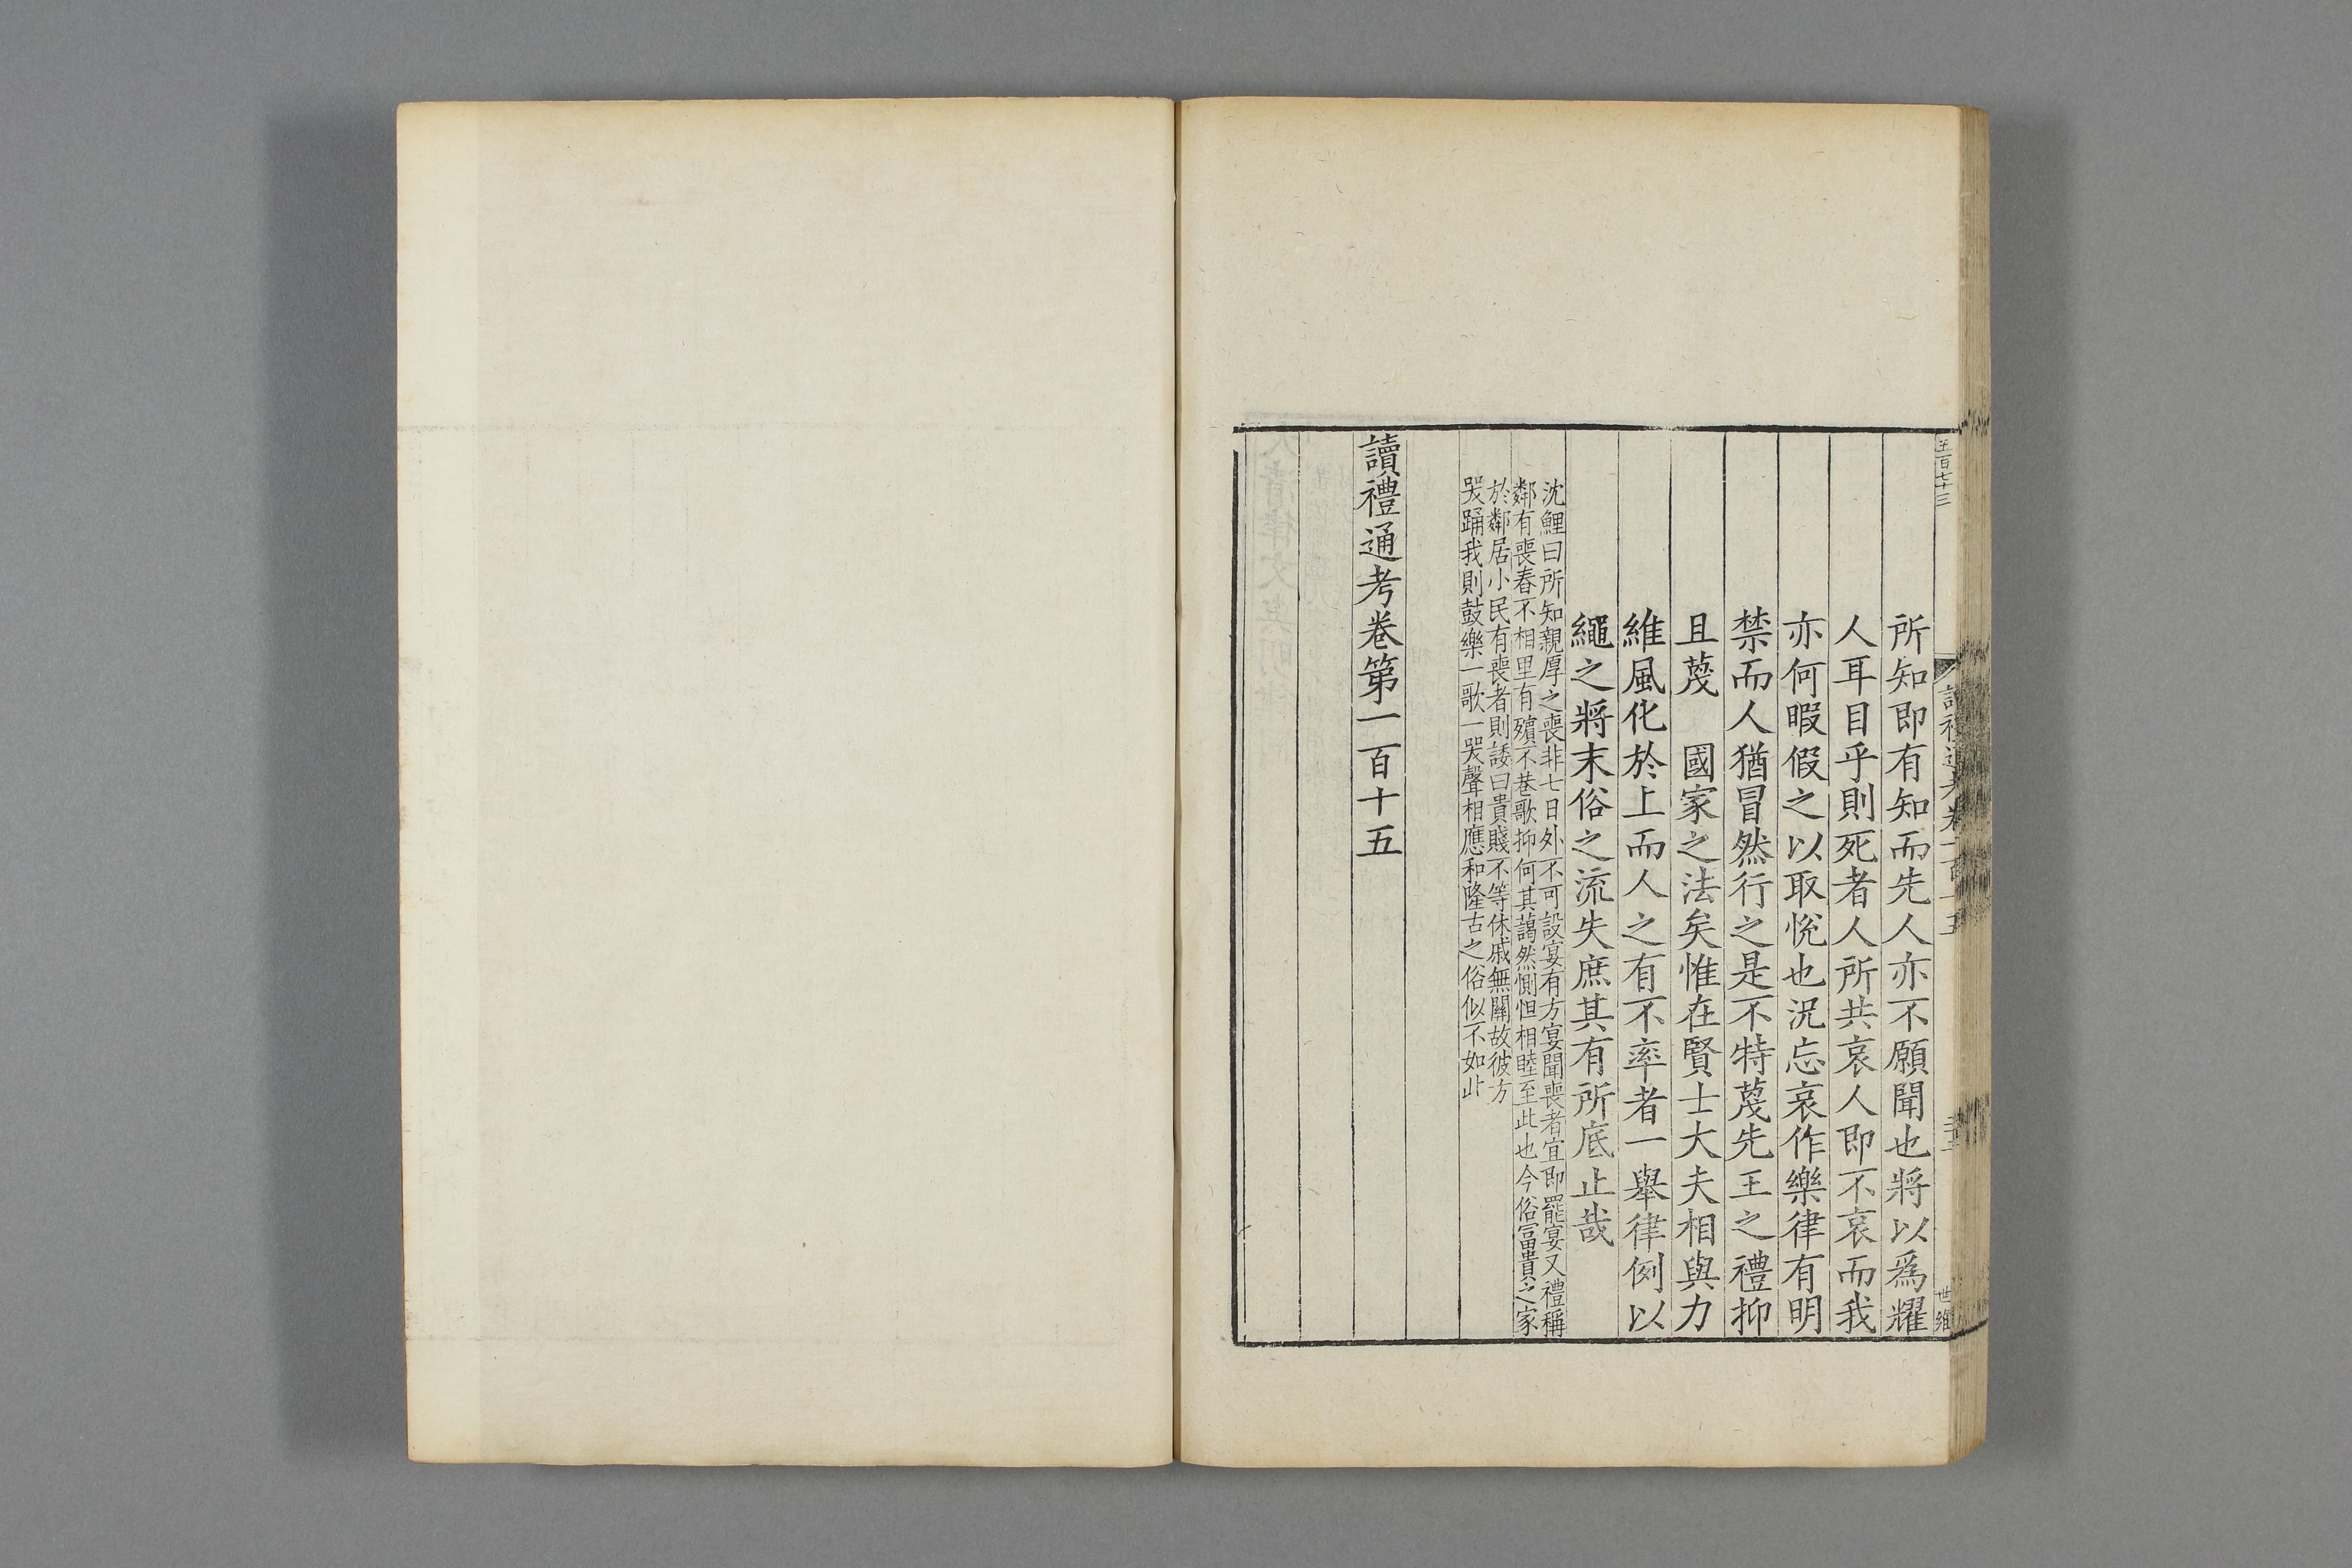 五百七十三
讀禮通考卷一百十五
世維
所知即有知而先人亦不願聞也將以爲耀
人耳目乎則死者人所共哀人即不哀而我
亦何暇假之以取悅也況忘哀作樂律有明
禁而人猶冒然行之是不特蔑先王之禮抑
且蔑　國家之法矣惟在賢士大夫相與力
維風化於上而人之有不率者一舉律例以
繩之將末俗之流失庶其有所底止哉
沈鯉曰所知親厚之喪非七日外不可設宴有方宴聞喪者宜即罷宴又禮稱
鄰有喪舂不相里有殯不巷歌抑何其藹然惻怛相睦至此也今俗富貴之家
於鄰居小民有喪者則諉曰貴賤不等休戚無關故彼方
哭踊我則鼓樂一歌一哭聲相應和隆古之俗似不如此
讀禮通考卷第一百十五